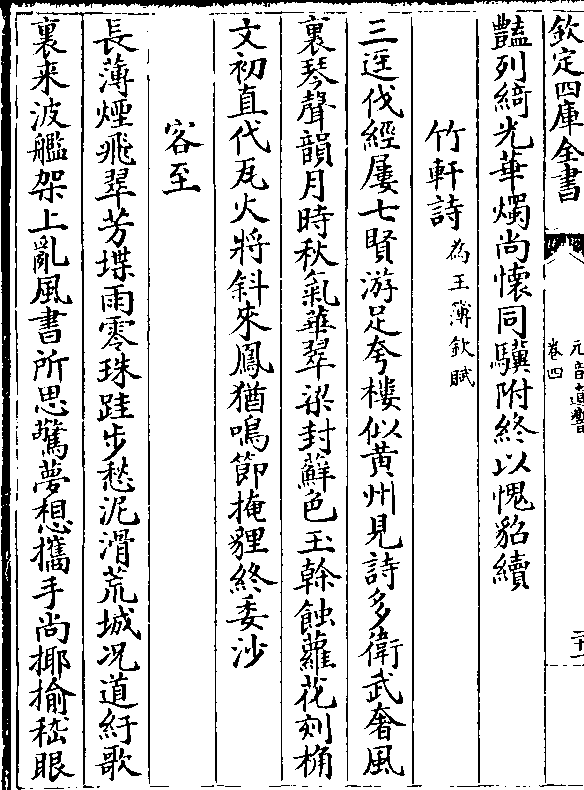 欽定四庫全書
卷四
豔列綺光華燭尚懷同驥附終以愧貂續
竹軒詩為王薄欽賦
三逕伐經屢七賢游足夸樓似黃州見詩多衛武奢風
裏琴聲韻月時秋氣華翠梁封蘚色玉榦蝕蘿花刻桷
文初直代瓦火將斜來鳳猶鳴節掩貍終委沙
客至
長薄煙飛翠芳堞雨零珠跬步愁泥滑荒城况道紆歌
裏来波艦架上亂風書所思驚夢想攜手尚揶揄嵇眼